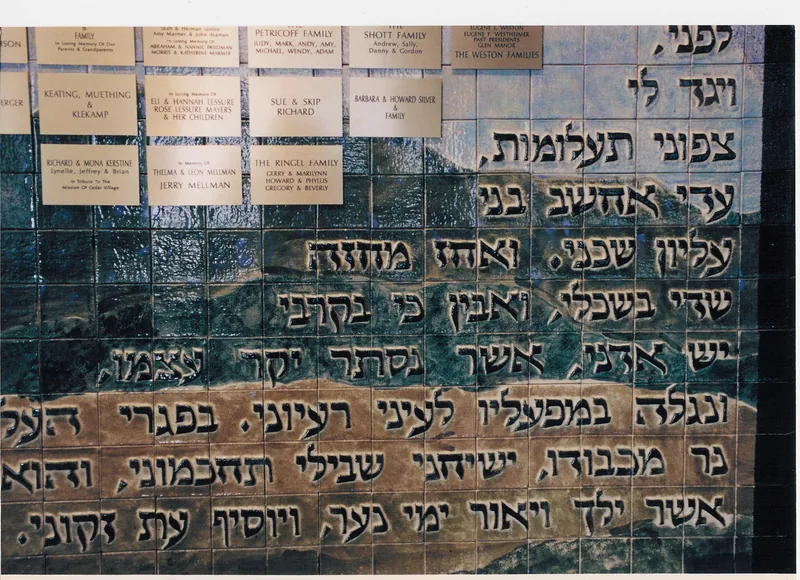 RSON
FAMILY
In Loving Memory Of Our
Parents & Grandparents
Leah & Herman Levine
Amy Marmer & John Ataman
In Loving Memory Of
ABRAHAM & NANNIE FRIEDMAN
MORRIS & KATHERINE MARMER
PETRICOFF FAMILY
JUDY, MARK, ANDY, AMY,
MICHAEL, WENDY, ADAM
THE
SHOTT FAMILY
Andrew, Sally,
Danny & Gordon
EUGENE L. WESTON
EUGENE F. WESTHEIMER
PAST PRESIDENTS
GLEN MANOR
THE WESTON FAMILIES
ERGER
KEATING, MUETHING
&
KLEKAMP
In Loving Memory Of
ELI & HANNAH LESSURE
ROSE LESSURE MAYERS
& HER CHILDREN
SUE & SKIP
RICHARD
BARBARA & HOWARD SILVER
&
FAMILY
RICHARD & MONA KERSTINE
Lynelle, Jeffrey & Brian
In Tribute To The
Mission Of Cedar Village
In Memory Of
THELMA & LEON MELLMAN
JERRY MELLMAN
THE RINGEL FAMILY
GERRY & MARILYNN
HOWARD & PHYLLIS
GREGORY & BEVERLY
לפני,
ויגד לי
צפוני תעלומות,
עדי אחשב בני
עליון שכני. ואחז מחזה
שדי בשכלי, ואבין כי בקרבי
יש אדני, אשר נסתר יקר עצמו,
ונגלה במפעליו לעיני רעיוני. בפגרי העל
נר מכבודו, ישיחני שבילי תחכמוני, והוא
אשר ילך ויאור ימי נער, ויוסיף עת זקוני.